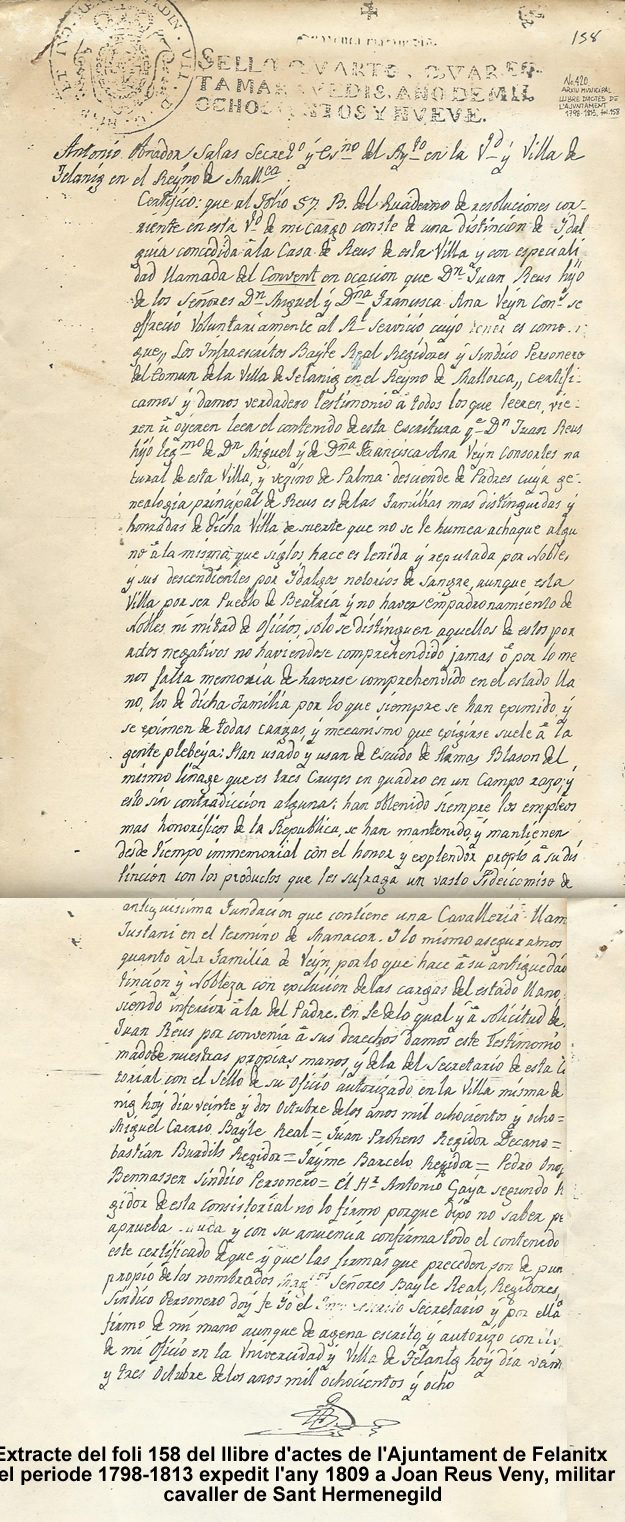 158
SELLO QVARTO, QVAREN-
TA MARAVEDIS, AÑO DE MIL
OCHOCIENTOS Y NUEVE.
No. 420
ARXIU MUNICIPAL
LLIBRE D'ACTES DE
L'AJUNTAMENT
1798-1813, fol. 158
Antonio Obrador Salas Secreto y Esno del Ayto en la Vd y Villa de
Felanig en el Reyno de Mallca.
Certifico: que al Folio 57. B. del Quaderno de resoluciones cor-
riente en esta Vd de mi cargo conste de una distincion de Ydal
guia concedida â la Casa de Reus de esta Villa y con especiali
dad llamada del Convent en ocacion que Dn Juan Reus hijo
de los Señores Dn Miguel y Dña Francisca Ana Veyn Cons se
offreció Voluntariamente al Rl Servicio cuyo tenor es como
gue,, Los Infraescritos Bayle Real Regidores y Sindico Personero
del Comun de la Villa de Felanig en el Reyno de Mallorca,, Certifi-
camos y damos verdadero testimonio â todos los que leeren, vie-
ren û oyeren leer el contenido de esta Escritura qe Dn Juan Reus
hijo legmo de Dn Miguel y de Dña Francisca Ana Veyn Consortes na
tural de esta Villa, y vezino de Palma desciende de Padres cuya ge-
nealogia principal de Reus es de las Familias mas distinguidas y
honradas de dicha Villa de suerte que no se le humea achaque algu
no â la misma, que siglos hace es tenida y reputada por Noble,
y sus descendientes por Ydalgos notorios de Sangre, aunque esta
Villa por ser Pueblo de Beatria y no haver empadronamiento de
Nobles, ni mitad de oficios, solo se distinguen aquellos de estos por
actos negativos no haviendose comprehendido jamas ô por lo me
nos falta memoria de haverse comprehendido en el estado lla
no, los de dicha Familia por lo que siempre se han eximido y
se eximen de todas cargas, y mecanismo que exigirse suele â la
gente plebeya: Han usado y usan de Escudo de Armas Blason del
mismo linage que es tres Cruzes en quadro en un Campo rozo; y
esto sin contradiccion alguna: han obtenido siempre los empleos
mas honorificos de la Republica, se han mantenido y mantienen
desde tiempo immemorial con el honor y explendor propio â su dis
tincion con los productos que les sufraga un vasto Fideicomiso de
antiquissima Fundacion que contiene una Cavalleria llam
Justani en el termino de Manacor. Y lo mismo aseguramos
quanto â la Familia de Veyn, por lo que hace â su antiguedad
tincion y Nobleza con exclucion de las cargas del estado llano
siendo inferior â la del Padre. En fe de lo qual y â solicitud de
Juan Reus por convenia â sus derechos Damos este Testimonio
mado de nuestras propias manos y de la del Secretario de esta
torial con el Sello de su oficio autorizado en la Villa misma de
nig hoy dia veinte y dos Octubre de los años mil ochocientos y ocho=
Miguel Carrio Bayle Real= Juan Prohens Regidor Decano=
bastian Burdils Regidor= Jayme Barcelo Regidor= Pedro
Bennasser Sindico Personero= el Hr Antonio Gaya segundo
gidor de esta consistorial no lo firmo porque dixo no saber pe
aprueba y con su anuencia confirma todo el contenido
este certificado de que y que las firmas que preceden son de puño
propio de los nombrados Señores Bayle Real, Regidores,
Sindico Personero doy fe Yo el Secretario y por ello
firmo de mi mano aunque de agena escrito, y autorizo con
de mi oficio en la Vnivercidad y Villa de Felanig hoy dia vein
y tres Octubre de los años mil ochocientos y ocho
Extracte del foli 158 del llibre d'actes de l'Ajuntament de Felanitx
el periode 1798-1813 expedit l'any 1809 a Joan Reus Veny, militar
cavaller de Sant Hermenegild